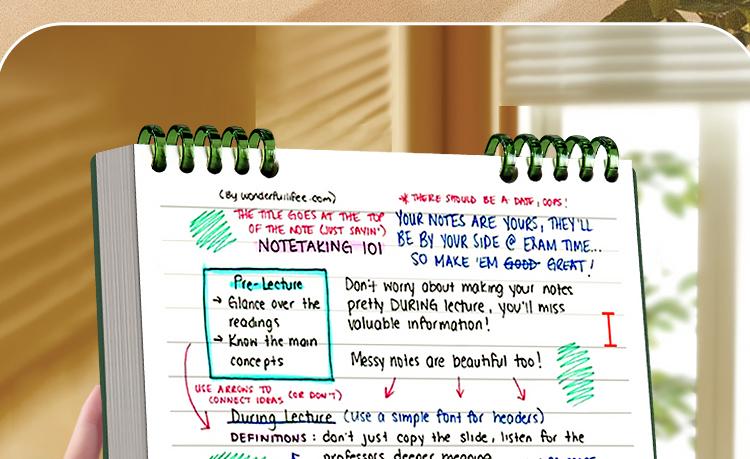 (By wonderfullifee.com)
* THERE SHOULD BE A DATE, OOPS!
THE TITLE GOES AT THE TOP
OF THE NOTE (JUST SAYIN')
NOTETAKING 101
YOUR NOTES ARE YOURS, THEY'LL
BE BY YOUR SIDE @ EXAM TIME...
SO MAKE 'EM GOOD GREAT!
Pre-Lecture
→ Glance over the
readings
→ Know the main
concepts
Don't worry about making your notes
pretty DURING lecture, you'll miss
valuable information!
Messy notes are beautiful too!
USE ARROWS TO
CONNECT IDEAS (OR DON'T)
During Lecture (Use a simple font for headers)
DEFINITIONS: don't just copy the slide, listen for the
professors deeper meaning